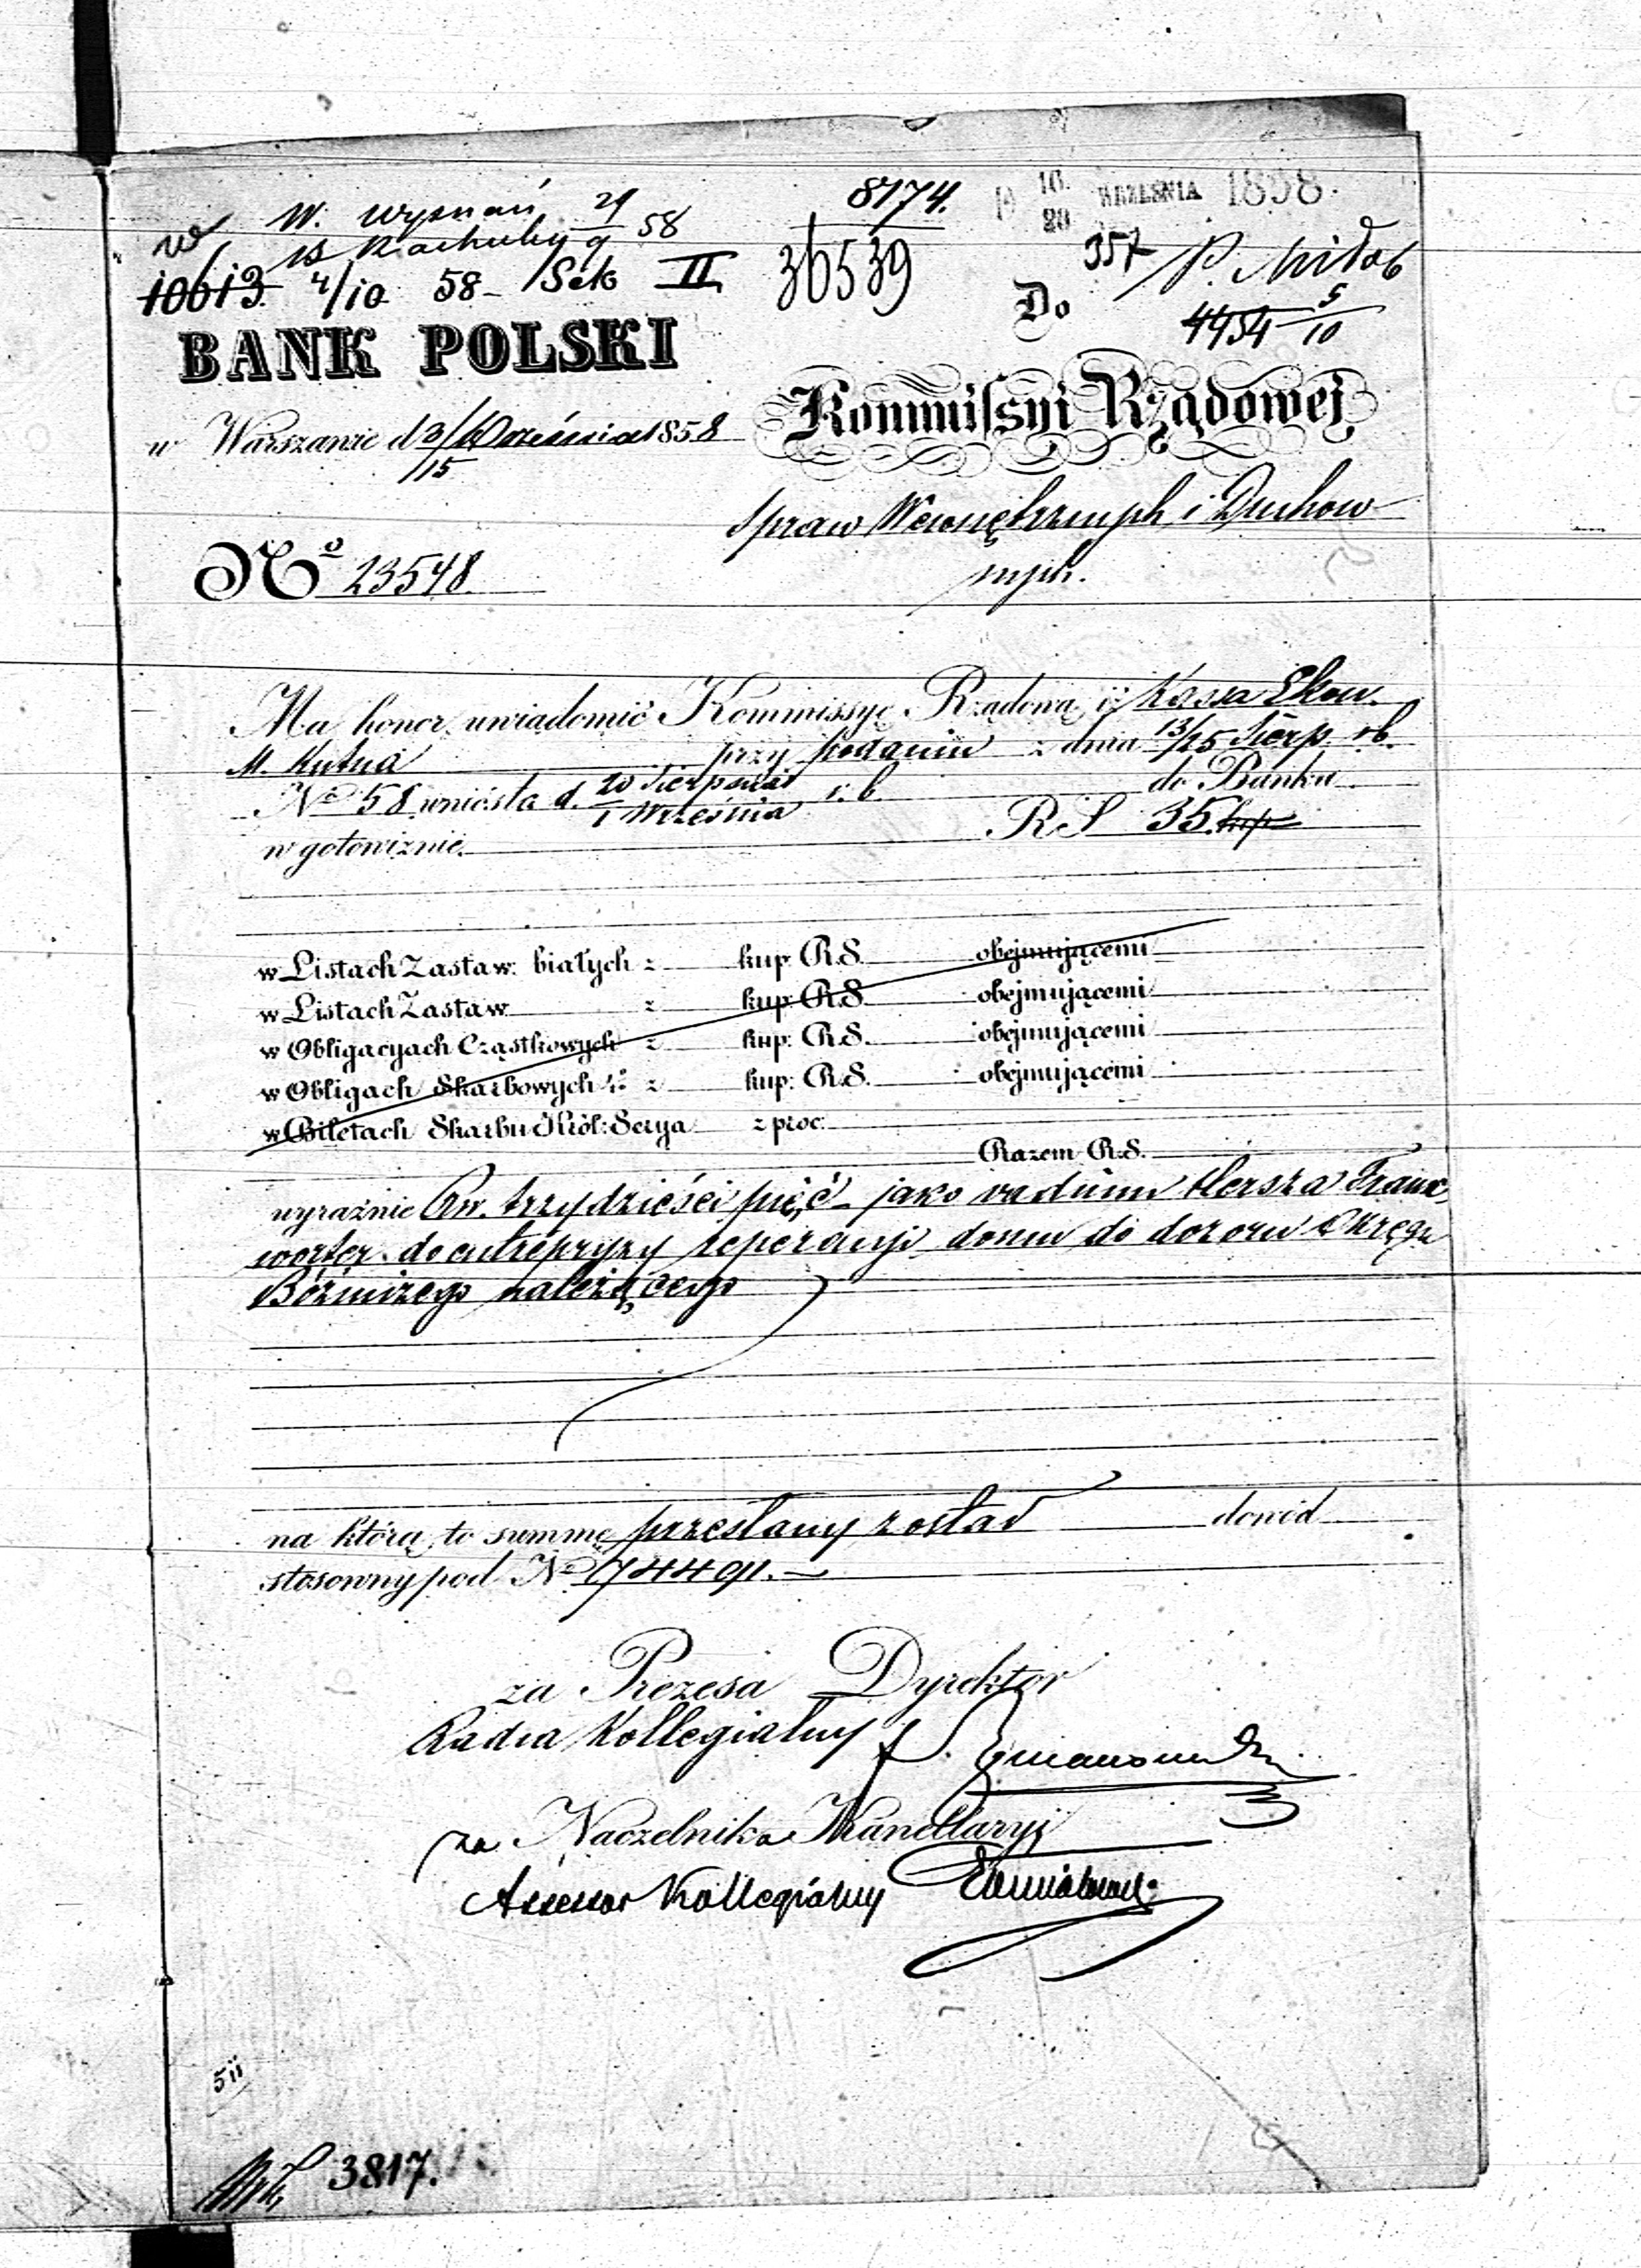 W. Wyznań 29/9 58
8174.
16/28 WRZEŚNIA 1858.
w Rachuby
10613 4/10 58 - Sek II
36539
357
Do
4454 5/10
BANK POLSKI
Kommissyi Rządowej
w Warszawie d 3/15 Września 1858
Spraw Wewnętrznych i Duchow
nych.
No 23548.
Ma honor uwiadomić Kommissyę Rządową iż Kassa Ekon.
M. Kutna przy podaniu z dnia 13/25 Sierp. r.b.
No 58 wniosła d. 20 Sierpnia / 1 Września r. b. do Banku
w gotowiznie. RS 35.
w Listach Zastaw: białych z kup. R.S. obejmującemi
w Listach Zastaw z kup: R.S. obejmującemi
w Obligacyach Cząstkowych z kup: R.S. obejmującemi
w Obligach Skarbowych z kup: R.S. obejmującemi
w Biletach Skarbu Król: Serya z proc:
Razem R.S.
wyraźnie Rs. trzydzieści pięć - jako vadium Herszka Frank
worter do entrepryzy reperacyi domu do dozoru Okręgu
Bóżniczego należącego
na którą to summę przesłany został dowód
stosowny pod No 74491. -
za Prezesa Dyrektor
Radca Kollegialny
za Naczelnika Kancellaryi
Assessor Kollegialny
511
3817.